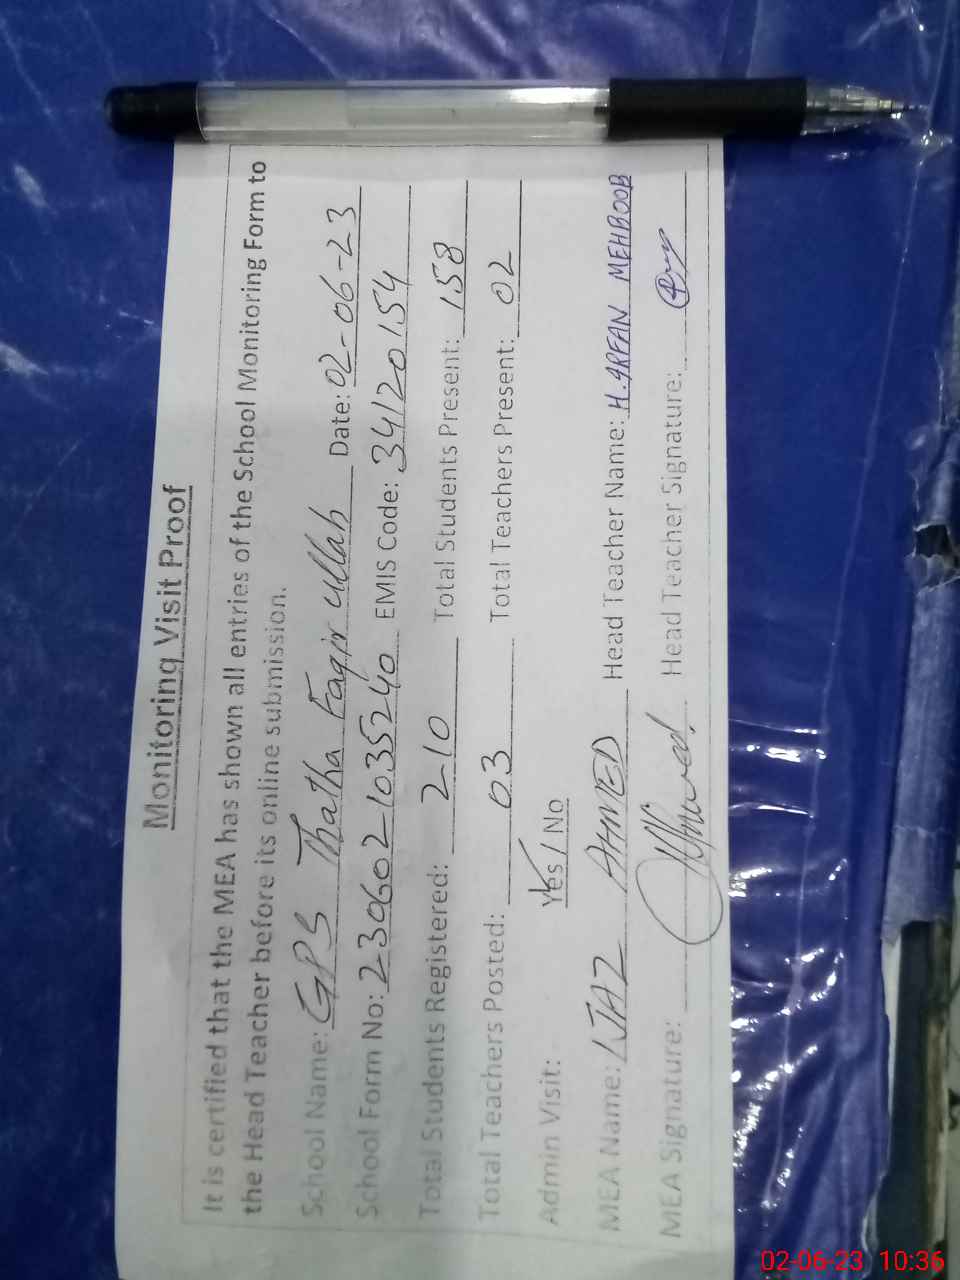 Monitoring Visit Proof
It is certified that the MEA has shown all entries of the School Monitoring Form to
the Head Teacher before its online submission.
School Name: GPS Thatha Faqir ullah Date: 02-06-23
School Form No: 2306021035240 EMIS Code: 34120154
Total Students Registered: 210 Total Students Present: 158
Total Teachers Posted: 03 Total Teachers Present: 02
Admin Visit: Yes / No
MEA Name: IJAZ AHMED Head Teacher Name: H.IRFAN MEHBOOB
MEA Signature: Ahmed. Head Teacher Signature:
02-06-23 10:36